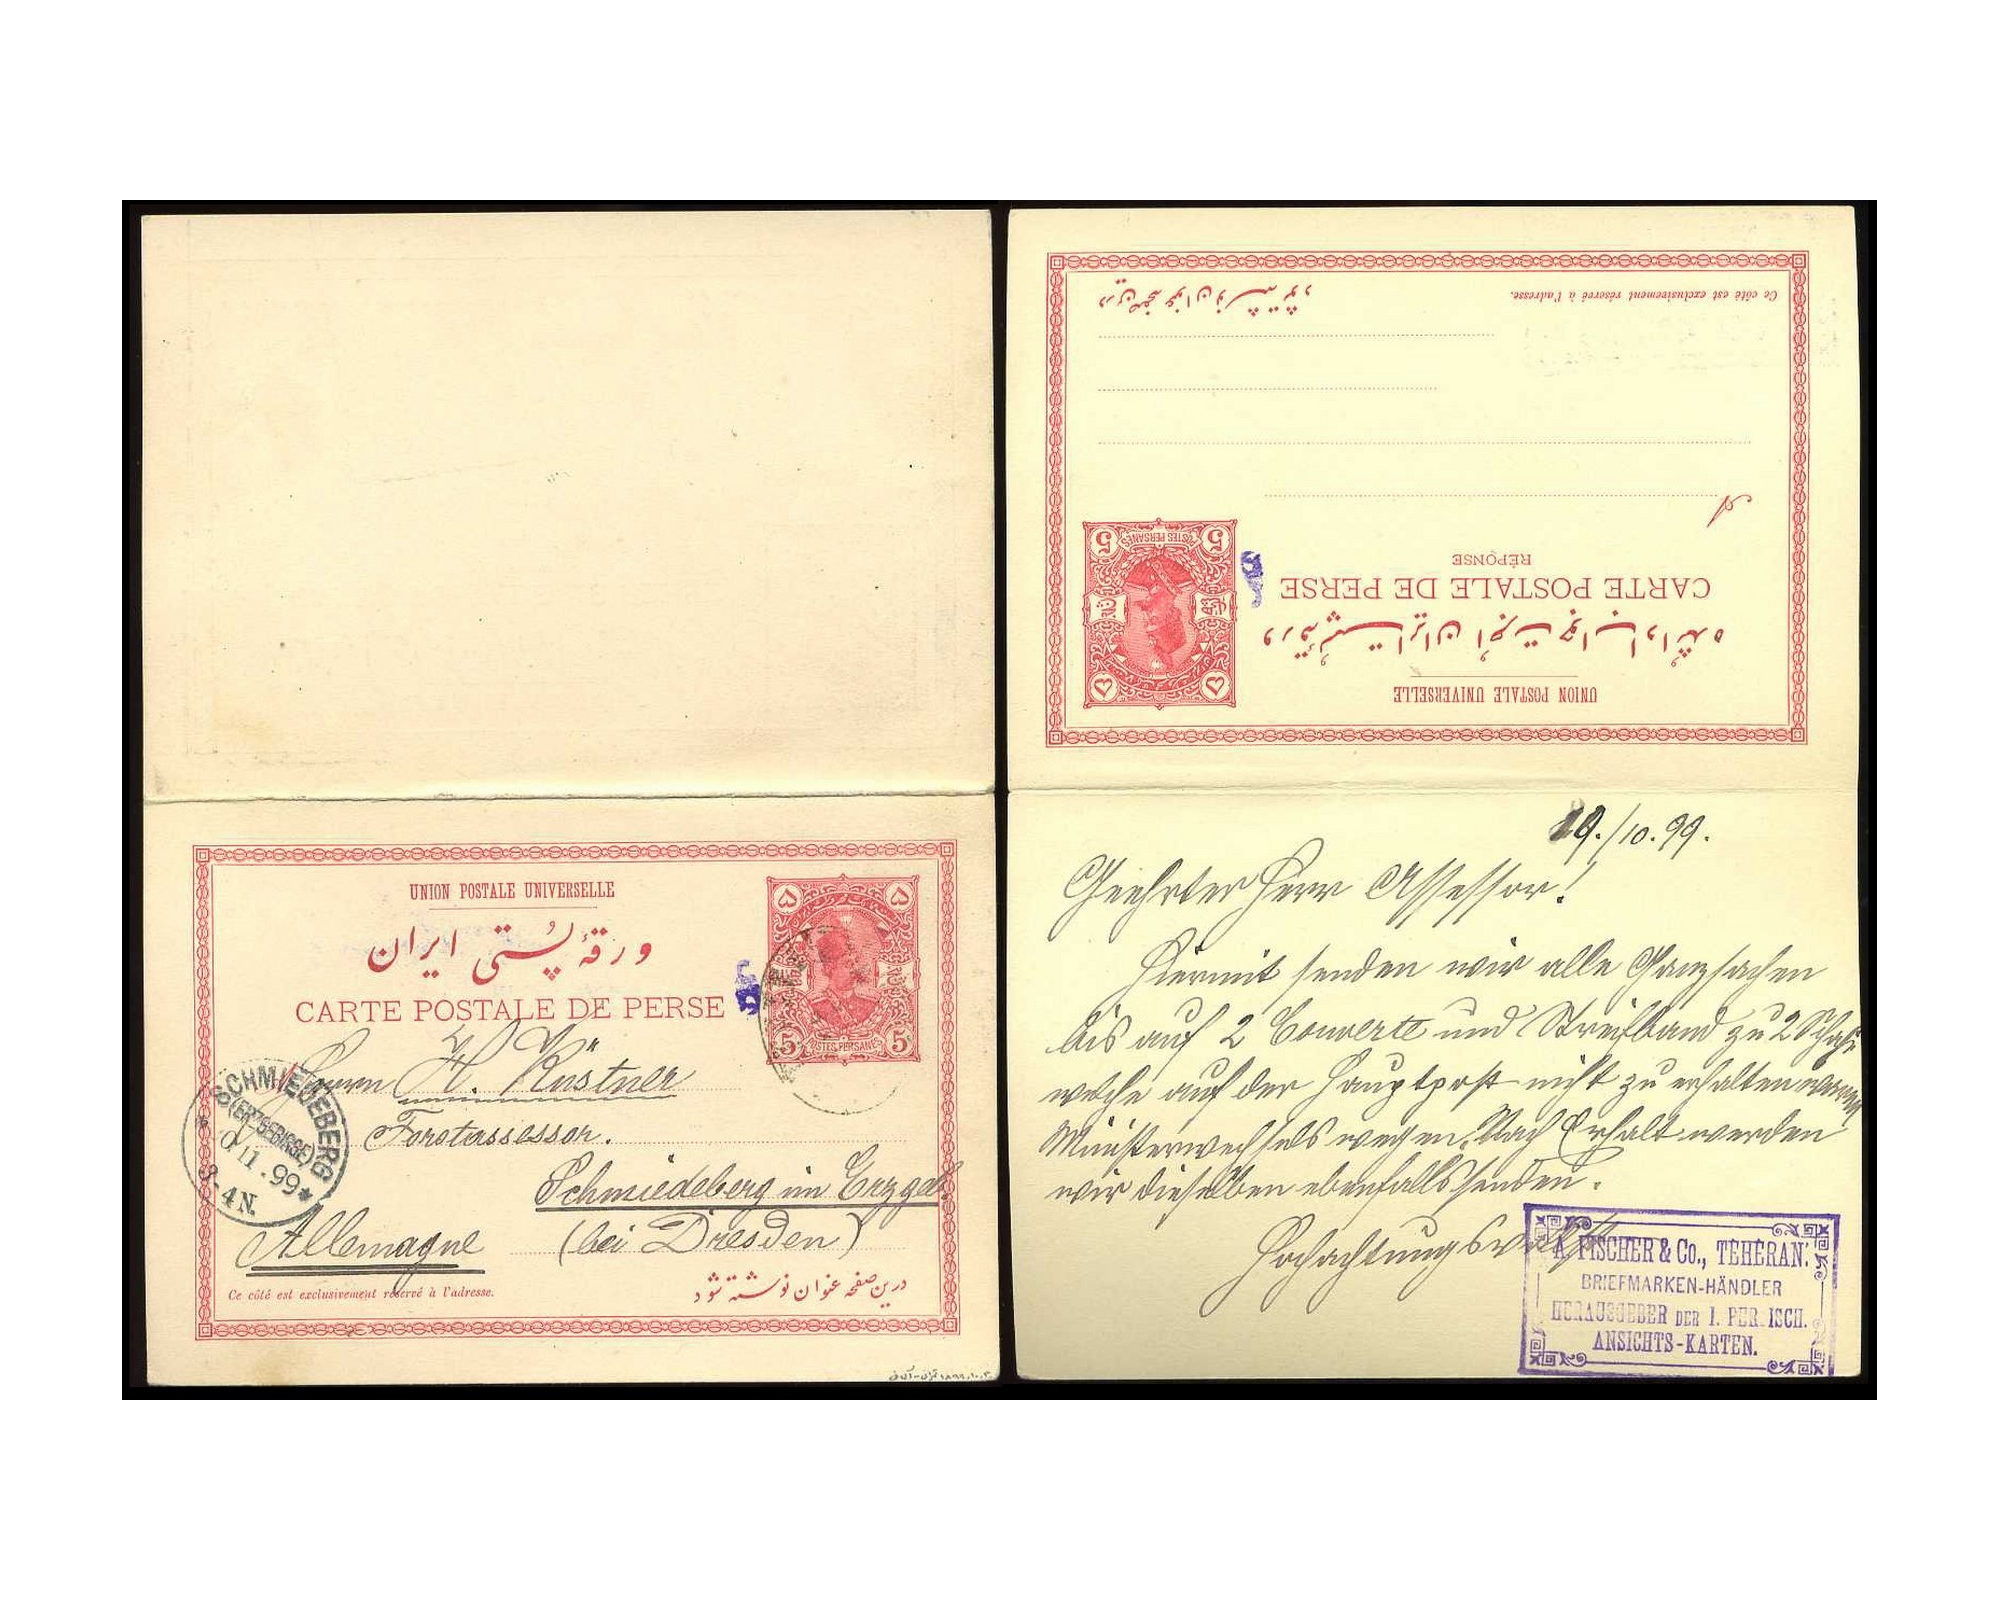 UNION POSTALE UNIVERSELLE
ورقهٔ پُستی ایران
CARTE POSTALE DE PERSE
۵ ۵
5 5
POSTES PERSANES
Herrn H. Küstner
Forstassessor.
Schmiedeberg im Erzgeb.
(bei Dresden)
Allemagne
SCHMIEDEBERG
(ERZGEBIRGE)
11.99
3-4N.
Ce côté est exclusivement réservé à l'adresse.
درین صفحه عنوان نوشته شود
UNION POSTALE UNIVERSELLE
CARTE POSTALE DE PERSE
RÉPONSE
۵ ۵
5 5
POSTES PERSANES
A
Ce côté est exclusivement réservé à l'adresse.
درین صفحه عنوان نوشته شود
/10.99.
Geehrter Herr Assessor!
Hiermit senden wir alle Ganzsachen
bis auf 2 Couverte und Streifband zu 2 Schahi
welche auf der Hauptpost nicht zu erhalten waren
Ministerwechsels wegen. Nach Erhalt werden
wir dieselben ebenfalls senden.
Hochachtungsvoll
A. FISCHER & Co., TEHERAN.
BRIEFMARKEN-HÄNDLER
HERAUSGEBER DER I. PERSISCH.
ANSICHTS-KARTEN.